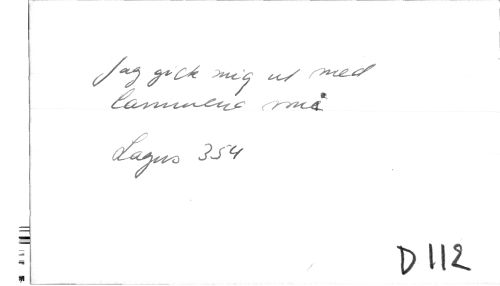 Jag gick mig ut med
lammena små
Lagus 354
D 112